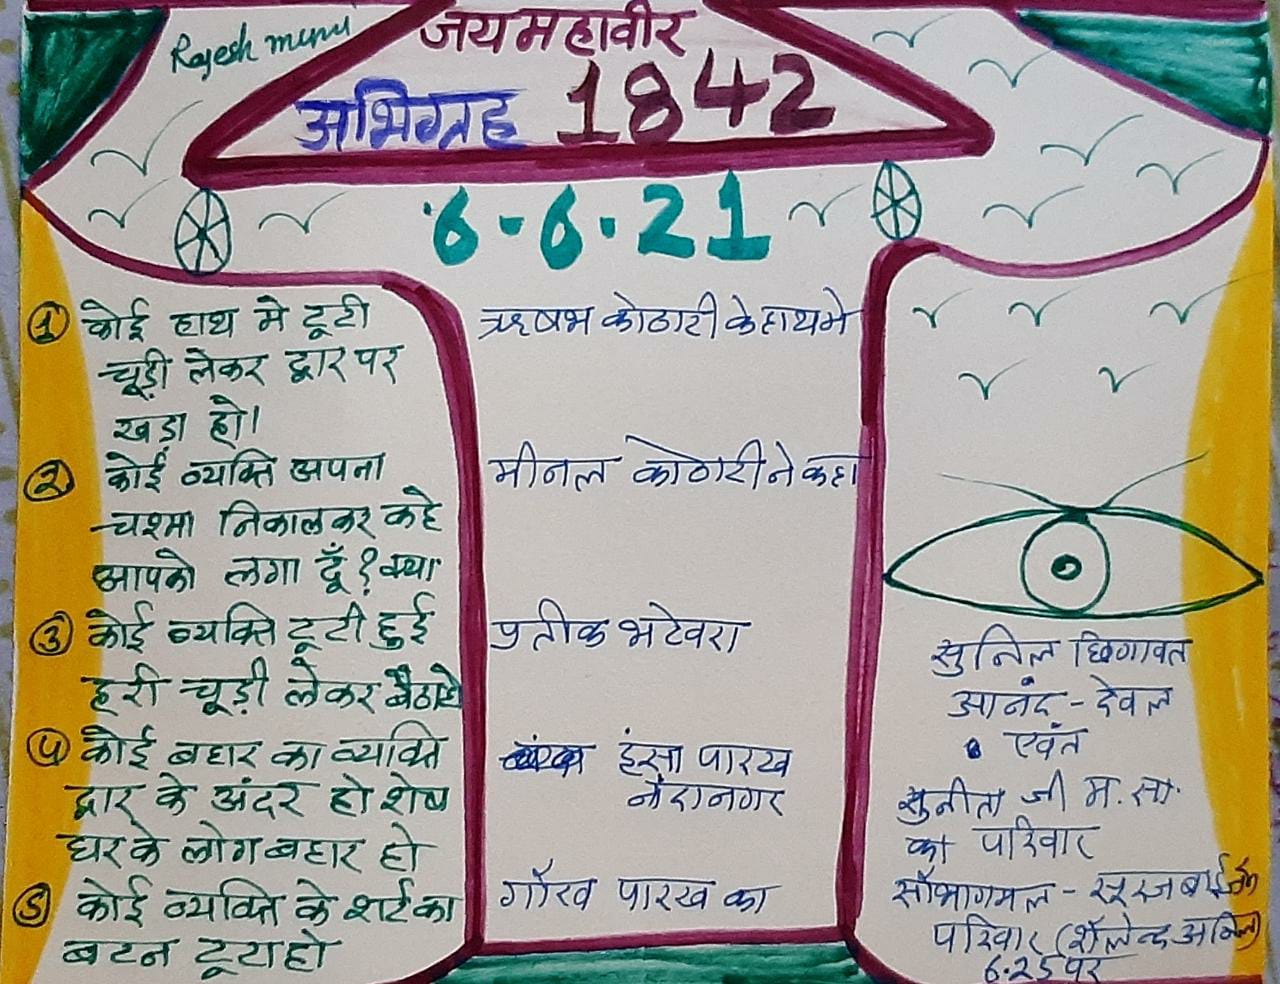 Rajesh muni
जय महावीर
अभिग्रह 1842
6-6-21
① कोई हाथ मे टूटी
चूड़ी लेकर द्वार पर
खड़ा हो।
② कोई व्यक्ति अपना
चश्मा निकालकर कहे
आपको लगा दूँ? क्या
③ कोई व्यक्ति टूटी हुई
हरी चूड़ी लेकर बैठा हो
④ कोई बहार का व्यक्ति
द्वार के अंदर हो शेष
घर के लोग बहार हो
⑤ कोई व्यक्ति के शर्ट का
बटन टूटा हो
ऋषभ कोठारी के हाथ मे
मीनल कोठारी ने कहा
प्रतीक भटेवरा
हंसा पारख
नंदानगर
गौरव पारख का
सुनिल छिगावत
आनंद - देवल
एवंत
सुनीता जी म. सा.
का परिवार
सौभागमल - सूरज बाई जैन
परिवार (शैलेन्द्र अनिल)
6.25 पर